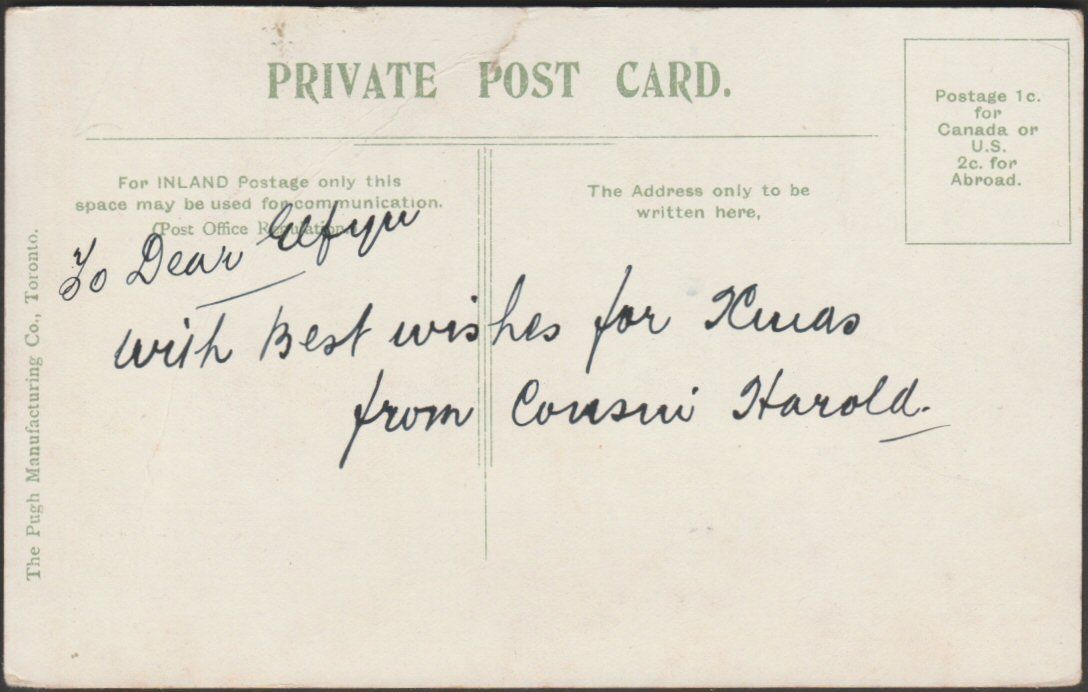 PRIVATE POST CARD.
Postage 1c.
for
Canada or
U.S.
2c. for
Abroad.
For INLAND Postage only this
space may be used for communication.
(Post Office Regulation.)
The Address only to be
written here,
To Dear Elfyn
with Best wishes for Xmas
from Cousin Harold.
The Pugh Manufacturing Co., Toronto.